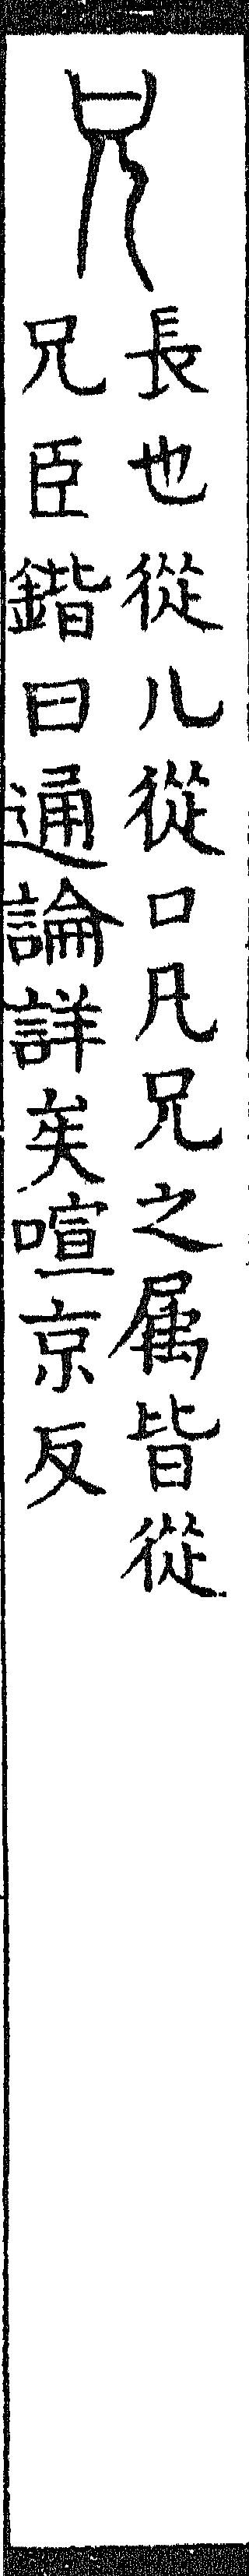 兄
長也從儿從口凡兄之属皆從
兄臣鍇曰通論詳矣喧京反